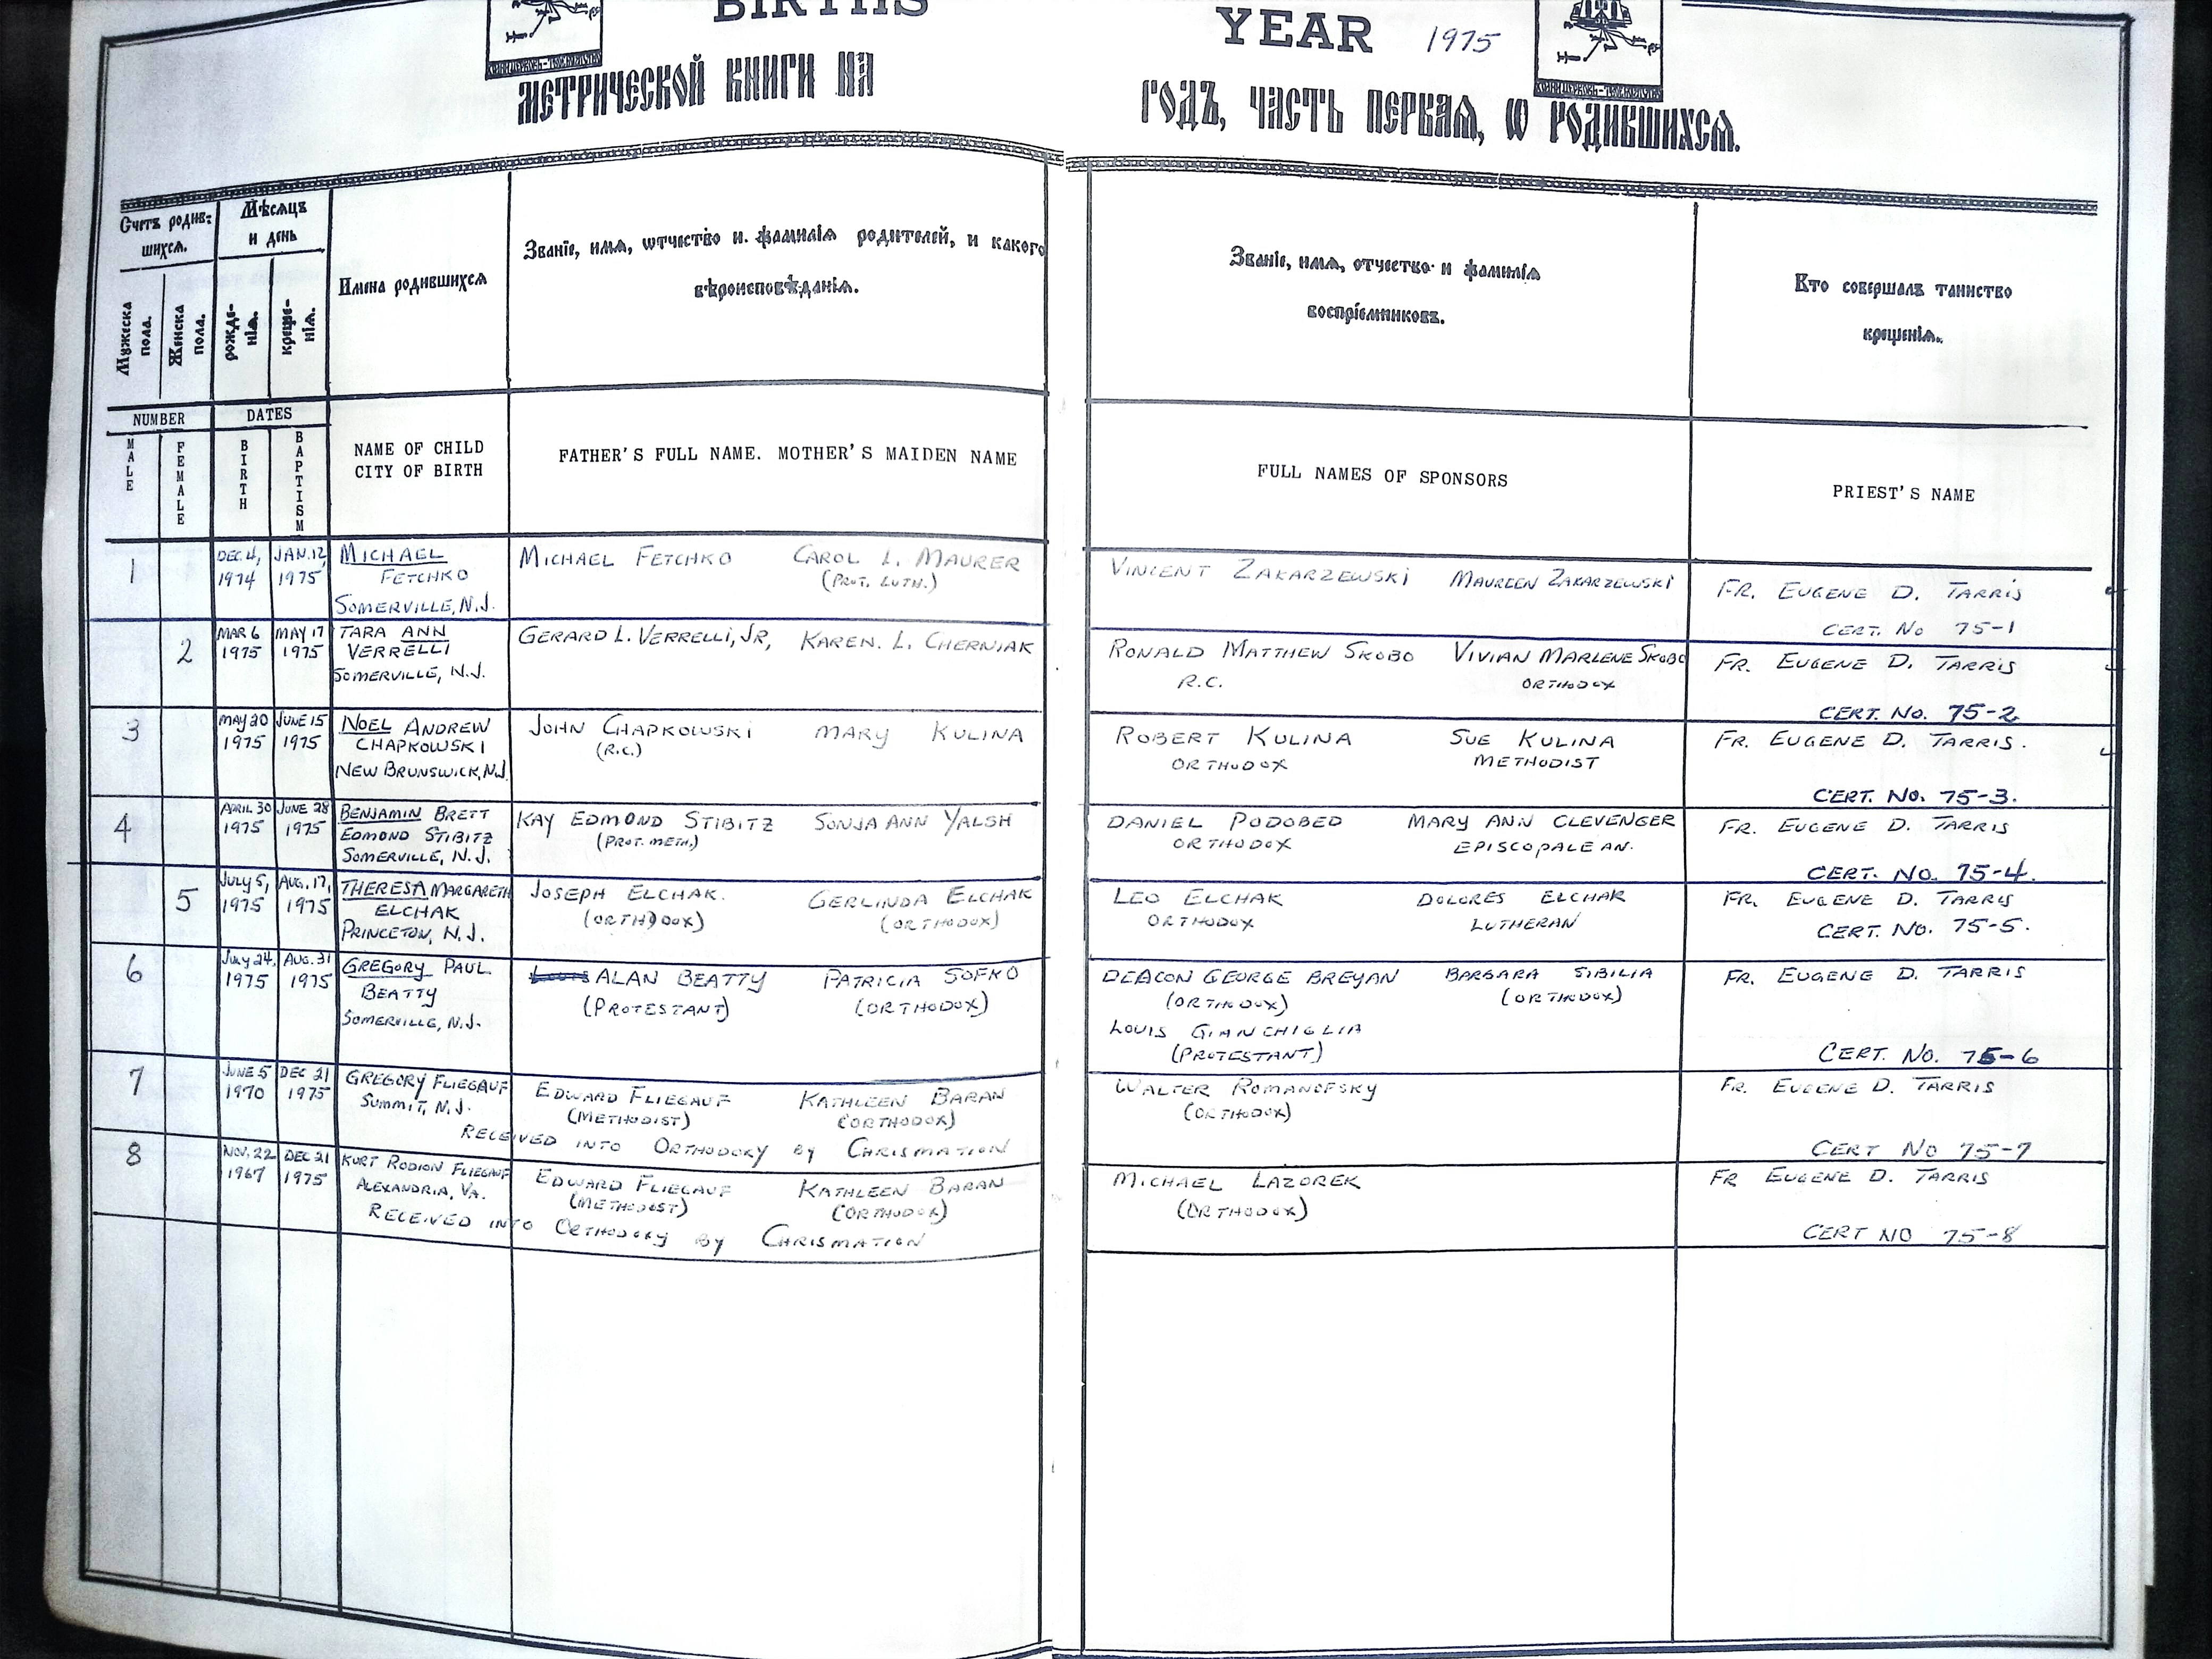 BIRTHS
YEAR 1975
МЕТРИЧЕСКОЙ КНИГИ НА
ГОДЪ, ЧАСТЬ ПЕРВАЯ, Ѡ РОДИВШИХСЯ.
Счетъ родив-
шихся.
Мѣсяцъ
и день
Мужеска
пола.
Женска
пола.
рожде-
нія.
креще-
нія.
Имена родившихся
Званіе, имя, ѡтчество и фамилія родителей, и какого
вѣроисповѣданія.
Званіе, имя, отчество и фамилія
воспріемниковъ.
Кто совершалъ таинство
крещенія.
NUMBER
DATES
MALE
FEMALE
BIRTH
BAPTISM
NAME OF CHILD
CITY OF BIRTH
FATHER'S FULL NAME. MOTHER'S MAIDEN NAME
FULL NAMES OF SPONSORS
PRIEST'S NAME
1
DEC. 4,
1974
JAN. 12,
1975
MICHAEL
FETCHKO
SOMERVILLE, N.J.
MICHAEL FETCHKO
CAROL L. MAURER
(PROT. LUTH.)
VINCENT ZAKARZEWSKI
MAUREEN ZAKARZEWSKI
FR. EUGENE D. TARRIS
CERT. No 75-1
2
MAR 6
1975
MAY 17
1975
TARA ANN
VERRELLI
SOMERVILLE, N.J.
GERARD L. VERRELLI, JR,
KAREN. L. CHERNIAK
RONALD MATTHEW SKOBO
R.C.
VIVIAN MARLENE SKOBO
ORTHODOX
FR. EUGENE D. TARRIS
CERT. NO. 75-2
3
MAY 20
1975
JUNE 15
1975
NOEL ANDREW
CHAPKOWSKI
NEW BRUNSWICK, N.J.
JOHN CHAPKOWSKI
(R.C.)
MARY KULINA
ROBERT KULINA
ORTHODOX
SUE KULINA
METHODIST
FR. EUGENE D. TARRIS.
CERT. NO. 75-3.
4
APRIL 30
1975
JUNE 28
1975
BENJAMIN BRETT
EDMOND STIBITZ
SOMERVILLE, N.J.
KAY EDMOND STIBITZ
(PROT. METH.)
SONJA ANN YALSH
DANIEL PODOBED
ORTHODOX
MARY ANN CLEVENGER
EPISCOPALEAN.
FR. EUGENE D. TARRIS
CERT. NO. 75-4.
5
JULY 5,
1975
AUG. 17,
1975
THERESA MARGARETH
ELCHAK
PRINCETON, N.J.
JOSEPH ELCHAK.
(ORTHODOX)
GERLINDA ELCHAK
(ORTHODOX)
LEO ELCHAK
ORTHODOX
DOLORES ELCHAK
LUTHERAN
FR. EUGENE D. TARRIS
CERT. NO. 75-5.
6
JULY 24,
1975
AUG. 31
1975
GREGORY PAUL.
BEATTY
SOMERVILLE, N.J.
ALAN BEATTY
(PROTESTANT)
PATRICIA SOFKO
(ORTHODOX)
DEACON GEORGE BREYAN
(ORTHODOX)
BARBARA SIBILIA
(ORTHODOX)
LOUIS GIANCHIGLIA
(PROTESTANT)
FR. EUGENE D. TARRIS
CERT. NO. 75-6
7
JUNE 5
1970
DEC 21
1975
GREGORY FLIEGAUF
SUMMIT, N.J.
EDWARD FLIEGAUF
(METHODIST)
KATHLEEN BARAN
(ORTHODOX)
RECEIVED INTO ORTHODOXY BY CHRISMATION
WALTER ROMANOFSKY
(ORTHODOX)
FR. EUGENE D. TARRIS
CERT NO 75-7
8
NOV. 22
1967
DEC 21
1975
KURT RODION FLIEGAUF
ALEXANDRIA, VA.
EDWARD FLIEGAUF
(METHODIST)
KATHLEEN BARAN
(ORTHODOX)
RECEIVED INTO ORTHODOXY BY CHRISMATION
MICHAEL LAZOREK
(ORTHODOX)
FR EUGENE D. TARRIS
CERT NO 75-8